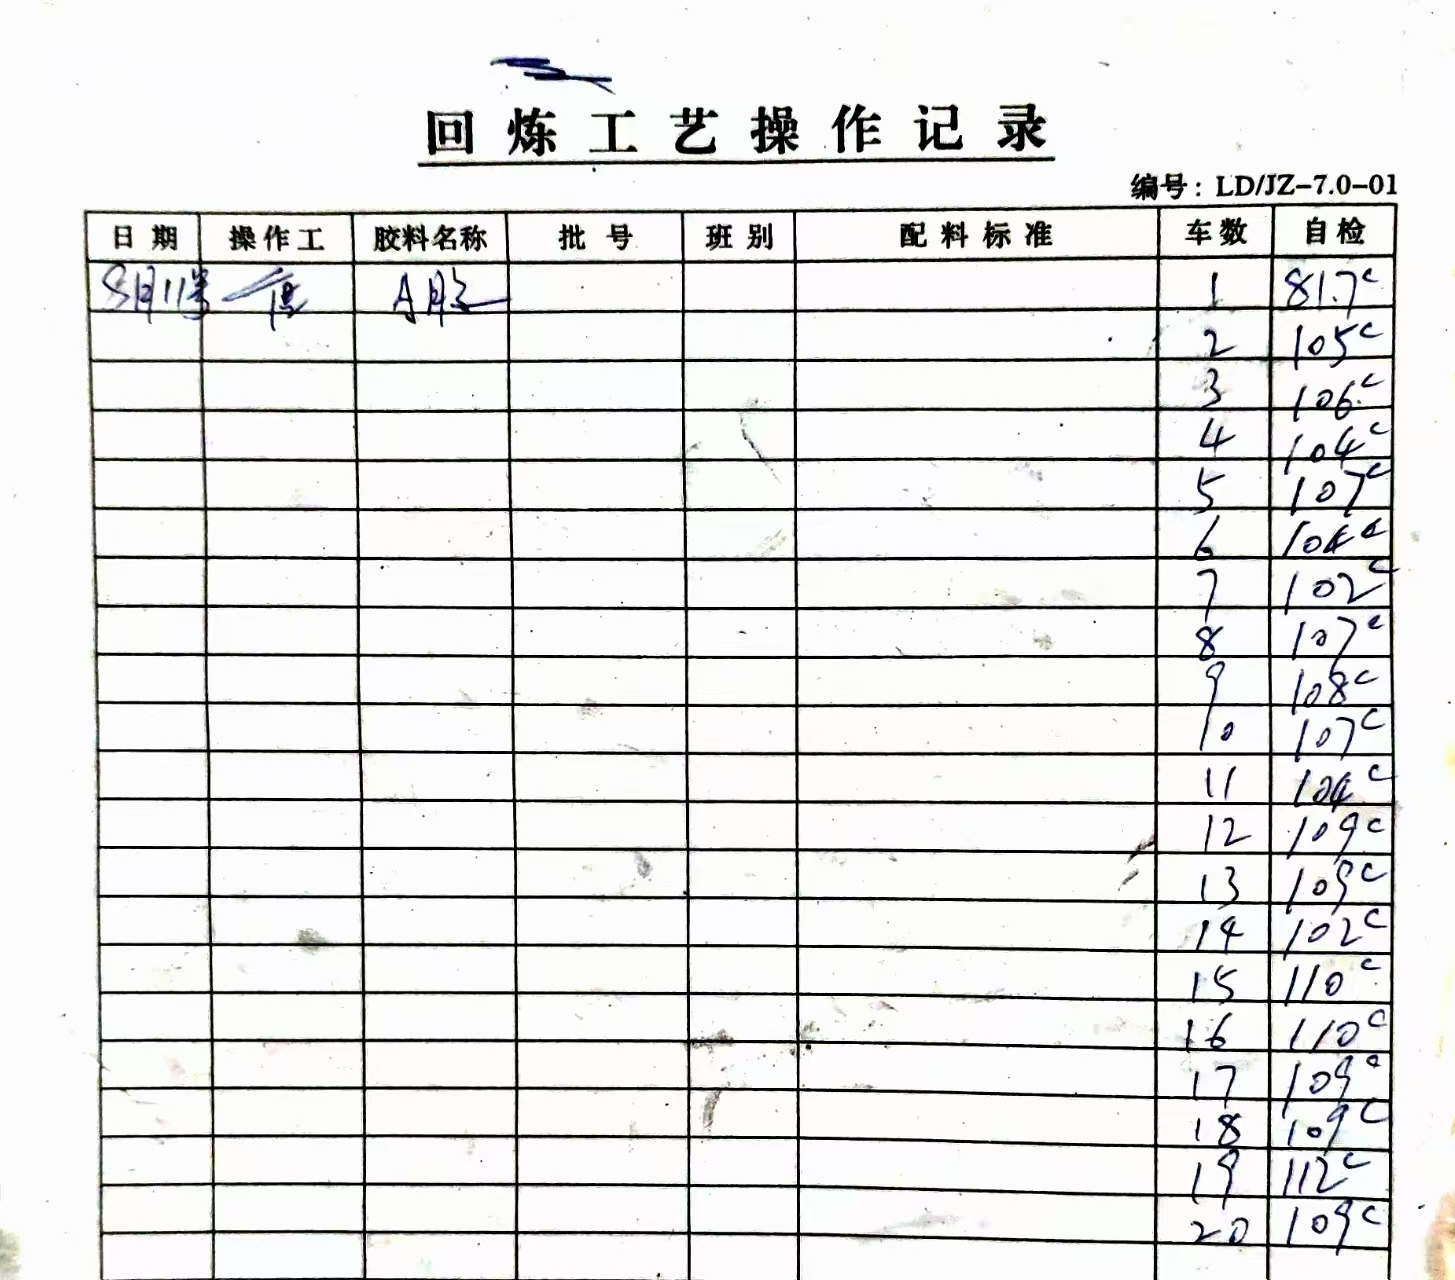 回炼工艺操作记录
编号：LD/JZ-7.0-01
日期 操作工 胶料名称 批号 班别 配料标准 车数 自检
8月11号 A胶 1 81.7c
2 105c
3 106c
4 104c
5 107c
6 104c
7 102c
8 107c
9 108c
10 107c
11 104c
12 109c
13 109c
14 102c
15 110c
16 110c
17 109c
18 109c
19 112c
20 109c